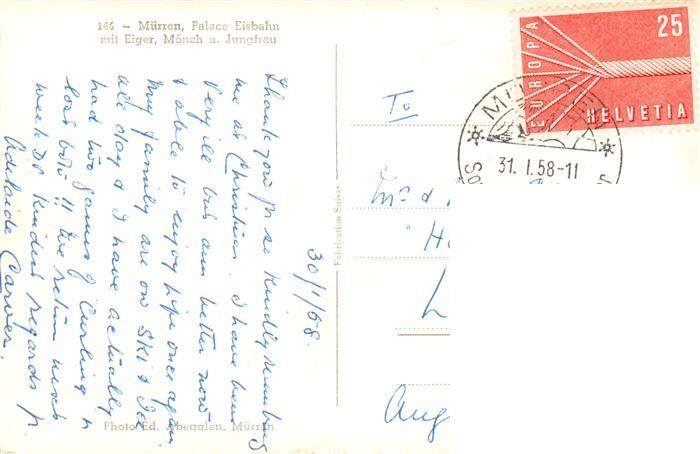 146 – Mürren, Palace Eisbahn
mit Eiger, Mönch u. Jungfrau
30/1/58.
Thank you for so kindly remembring
me at Christmas. I have been
very ill but am better now
& able to enjoy life once again
My family are on Ski & Ice
all day & I have actually
had two games of Curling &
lost both!! We return next
week DV Kindest regards fr
Adelaide Carver.
Photo Ed. Abegglen, Mürren
Fabrication Suisse
EUROPA
25
HELVETIA
31. I. 58-11
To
Mr &
L
Aug